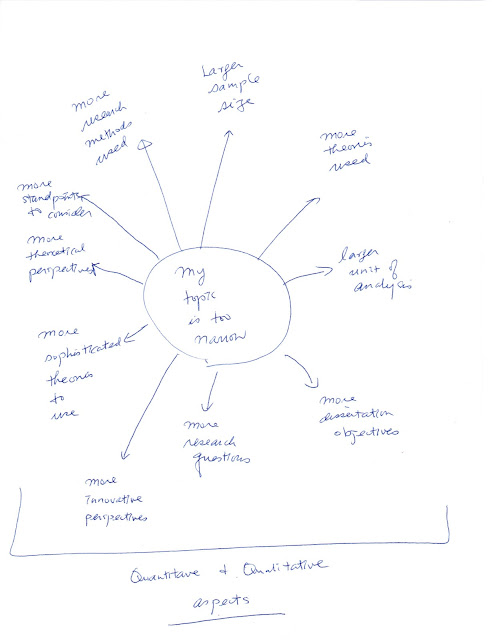 Larger
sample
size
more
research
methods
used
more
theories
used
more
standpoints
to consider
more
theoretical
perspectives
larger
unit of
analysis
my
topic
is too
narrow
more
sophisticated
theories
to
use
more
dissertation
objectives
more
research
questions
more
innovative
perspectives
Quantitave & Qualitative
aspects